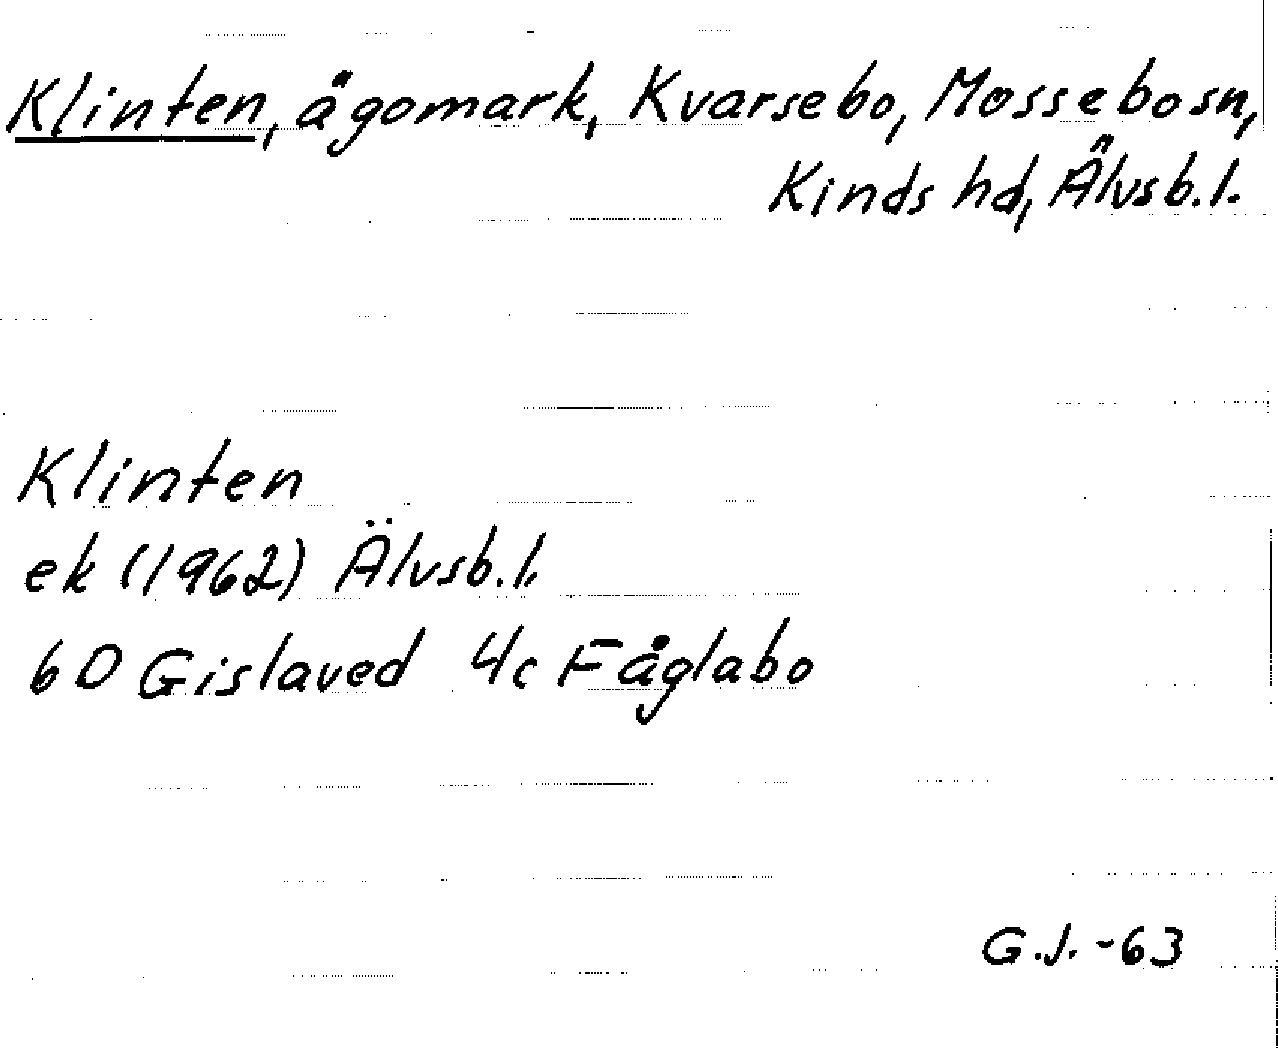 Klinten, ägomark, Kvarsebo, Mossebo sn,
Kinds hd, Älvsb. l.
Klinten
ek (1962) Älvsb. l.
6D Gislaved 4c Fåglabo
G.J. -63